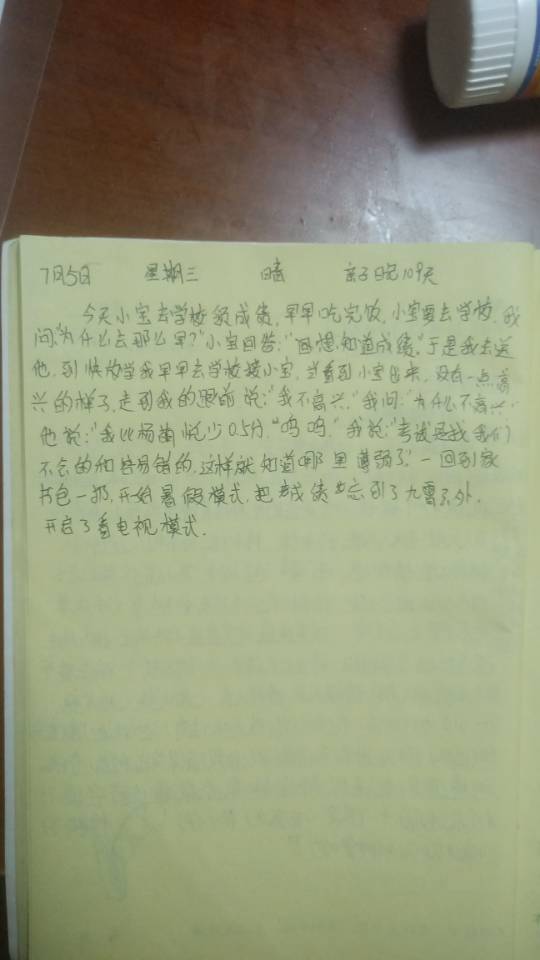 7月5日 星期三 晴 亲子日记109天
今天小宝去学校领成绩,早早吃完饭,小宝要去学校,我
问:“为什么去那么早?”小宝回答:“回想知道成绩。”于是我去送
他,到快放学我早早去学校接小宝,当看到小宝出来,没有一点高
兴的样子,走到我的跟前说:“我不高兴。”我问:“为什么不高兴。”
他说:“我比杨 少0.5分,“呜呜。”我说:“考试是找我们
不会的和容易错的,这样就知道哪里薄弱了。一回到家
书包一扔,开始暑假模式,把成绩忘到了九霄云外,
开启了看电视模式.